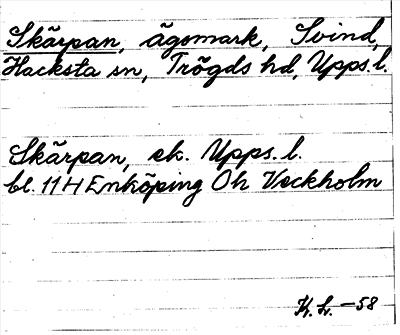 Skärpan, ägomark, Svind,
Hacksta sn, Trögds hd, Upps. l.
Skärpan, ek. Upps. l.
bl. 11 H Enköping Oh Veckholm
K. L. -58